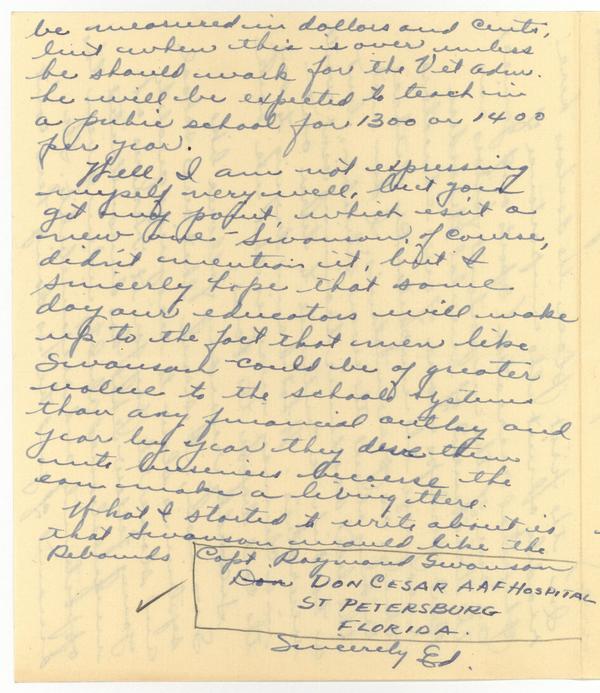 be measured in dollars and cents,
but when this is over unless
he should work for the Vet adm.
he will be expected to teach in
a pubic school for 1300 or 1400
per year.
Well, I am not expressing
myself very well, but you
git my point, which isn't a
new one - Swanson, of course,
didn't mention it, but I
sincerely hope that some
day our educators will wake
up to the fact that men like
Swanson could be of greater
value to the school systems
than any financial outlay and
year by year they drive them
into business because the
can make a living there.
What I started to write about is
that Swanson would like the
Rebounds Capt. Raymond Swanson
Don DON CESAR AAF HOSPITAL
ST PETERSBURG
FLORIDA.
Sincerely Ed.